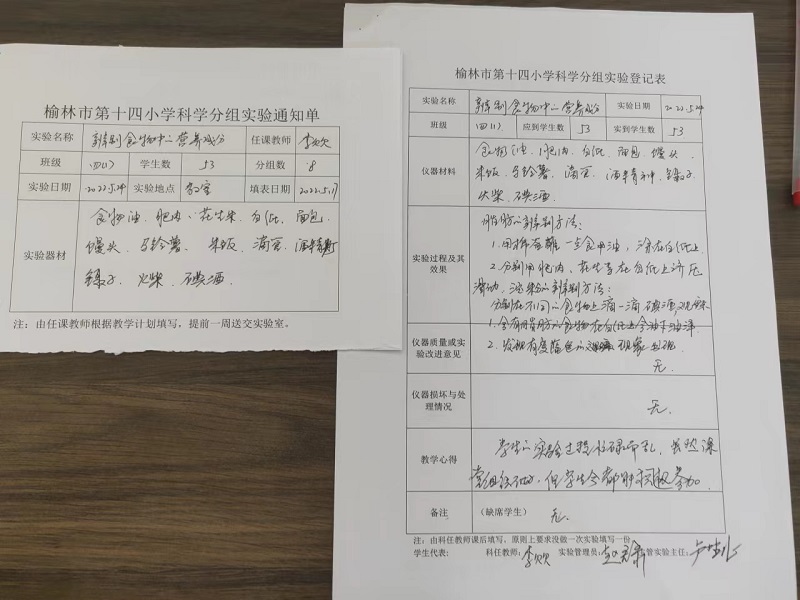 榆林市第十四小学科学分组实验通知单
实验名称 辨别食物中的营养成分 任课教师 李欢
班级 四(1) 学生数 53 分组数 8
实验日期 2022.5.24 实验地点 教室 填表日期 2022.5.17
实验器材
食物油、肥肉、花生米、白纸、面包
馒头、马铃薯、米饭、滴管、酒精
镊子、火柴、碘酒
注：由任课教师根据教学计划填写，提前一周送交实验室。
榆林市第十四小学科学分组实验登记表
实验名称 辨别食物中的营养成分 实验日期 2022.5.24
班级 四(1) 应到学生数 53 实到学生数 53
仪器材料
食物油、肥肉、白纸、面包、馒头
米饭、马铃薯、滴管、酒精、镊子
火柴、碘酒
实验过程及其效果
脂肪的辨别方法：
1.用棒蘸一些食用油，涂在白纸上
2.分别用肥肉、花生等在白纸上挤压
滑动，淀粉的辨别方法：
分别在不同的食物上滴一滴碘酒，观察
1.含有脂肪的食物在白纸上会油下油渍
仪器质量或实验改进意见
2.发现有变蓝色的现象出现
无.
仪器损坏与处理情况
无.
教学心得
学生的实验过程忙碌而乱，虽然课
堂组织，但学生会都积极参加
备注 （缺席学生） 无.
注：由科任教师课后填写，原则上要求没做一次实验填写一份
学生代表： 科任教师：李欢 实验管理员： 管实验主任：